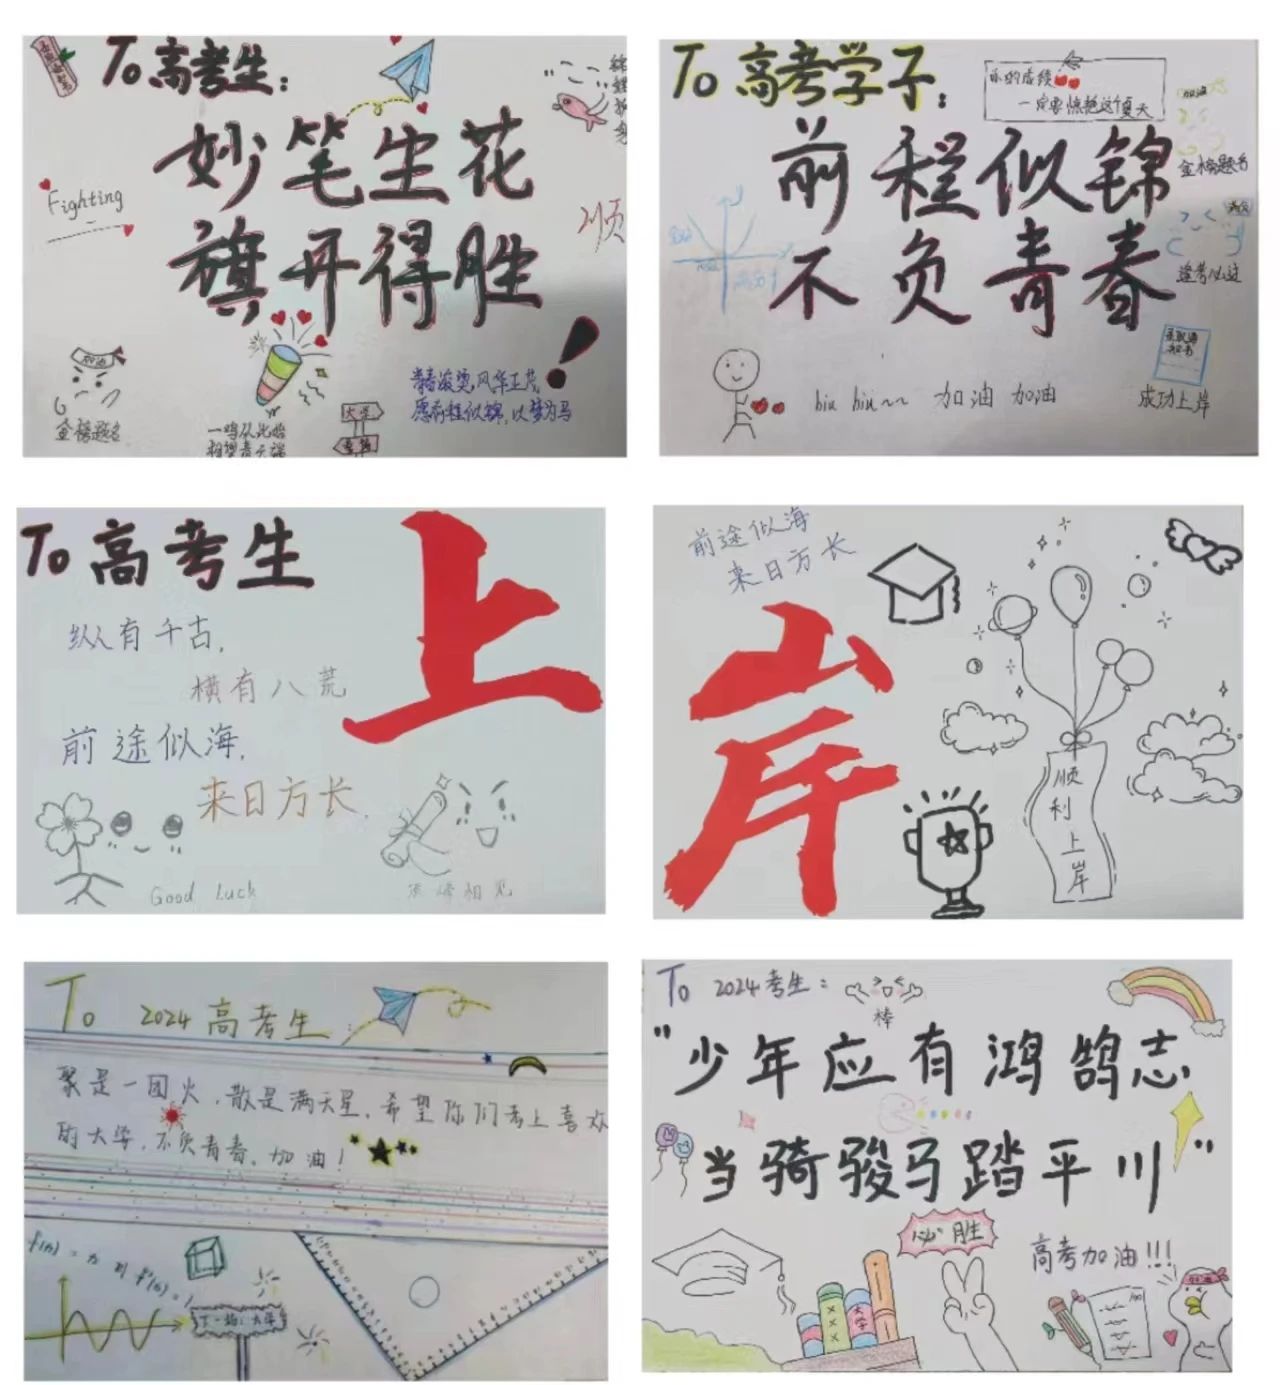 To 高考生：
妙笔生花
旗开得胜！
Fighting
顺
加油
金榜题名
一鸣从此始
相望青云端
大学
青春滚烫，风华正茂，
愿前程似锦，以梦为马
To 高考学子：
你的成绩
一定要惊艳这个夏天
前程似锦
不负青春
加油
金榜题名
满分
逢考必过
biu biu~~ 加油 加油
录取通知书
成功上岸
To 高考生
纵有千古，
横有八荒
前途似海，
来日方长，
Good Luck
顶峰相见
上
前途似海
来日方长
岸
顺利上岸
To 2024 高考生：
聚是一团火，散是满天星，希望你们考上喜欢
的大学，不负青春，加油！
下一站：大学
To 2024考生：
棒
"少年应有鸿鹄志
当骑骏马踏平川"
必胜
高考加油!!!
大学
加油